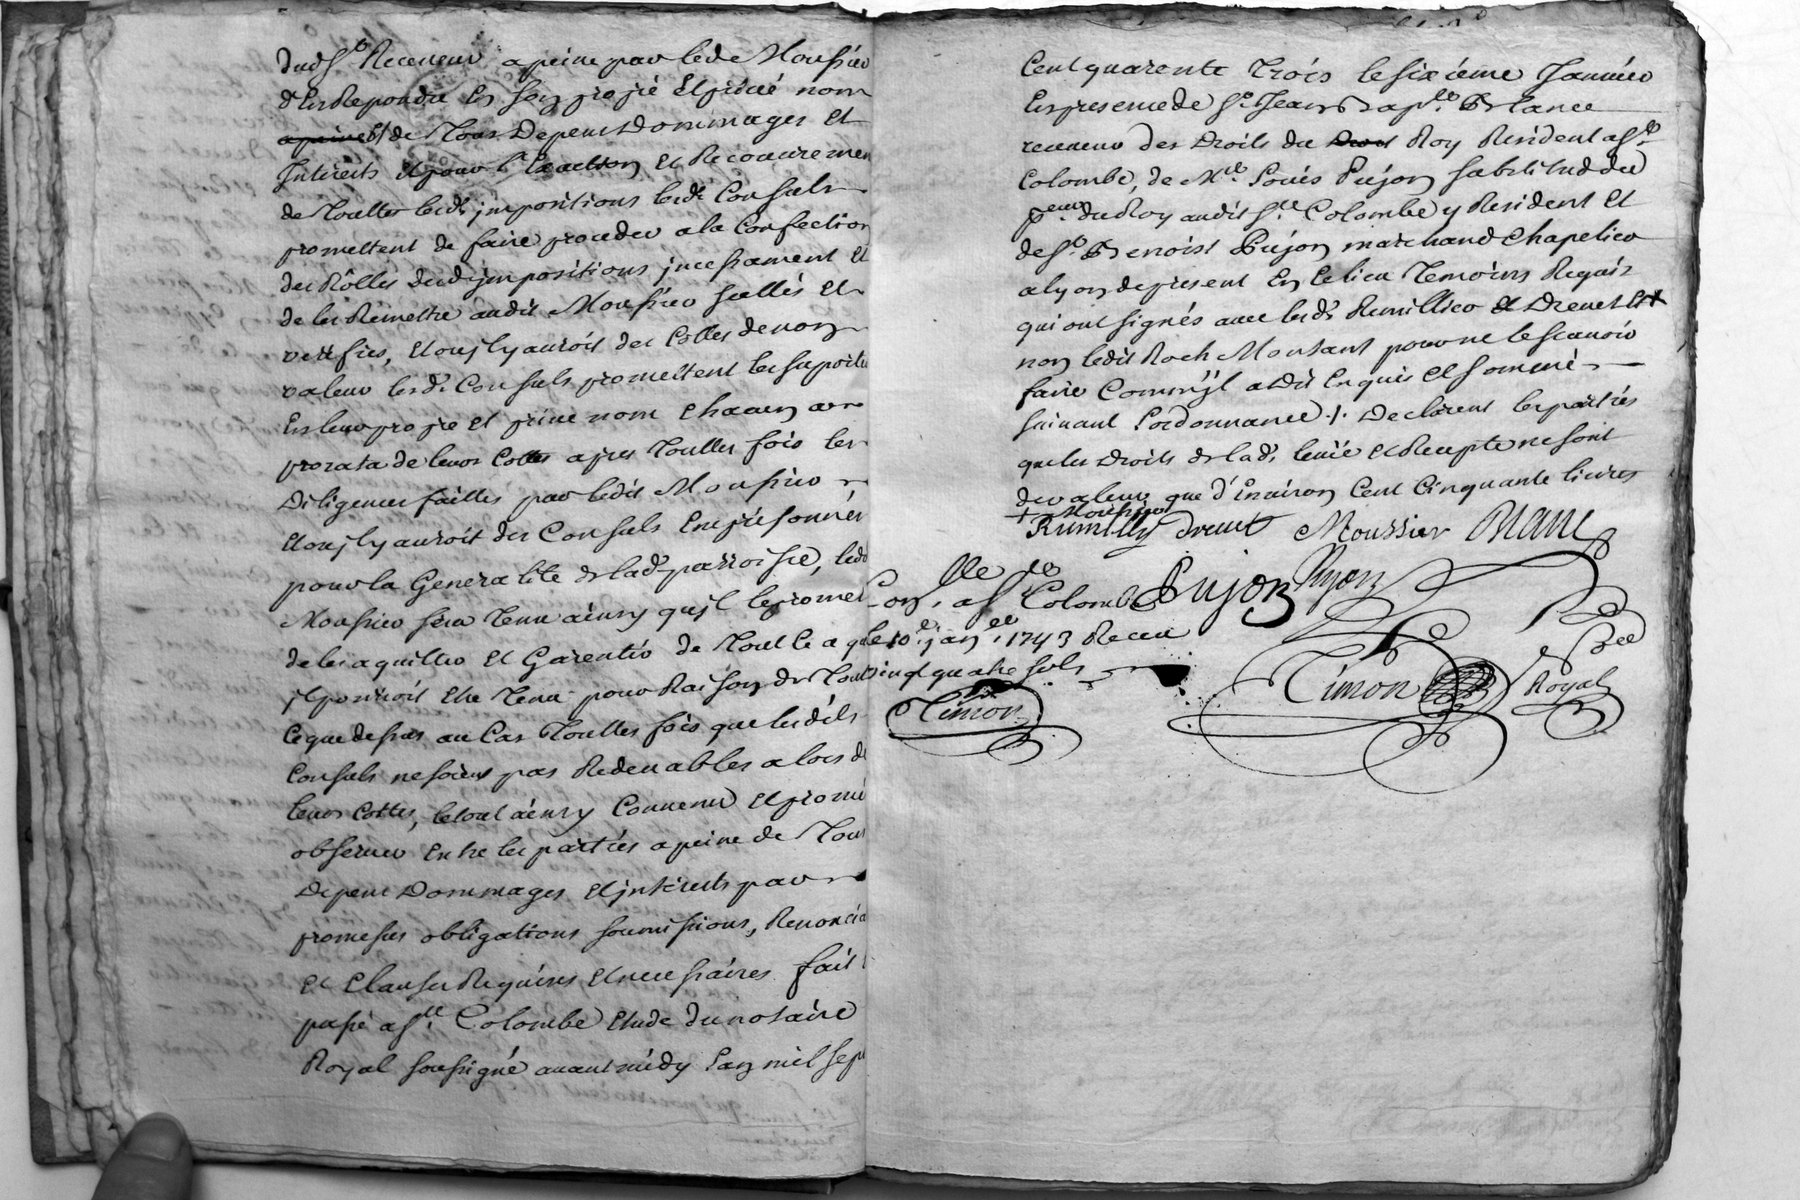 dud Sr Receveur a peine par led Moussier
d'En Repondre En son propre Et privé nom
de Tous Depens Dommages et
Interets Et pour l'Exaction et Recouvremen
de Touttes lesd. impositions lesd. Consuls
promettent de faire proceder a la Confection
des Rôlles desd. impositions incessament Et
de les Remettre audit Moussier scellés et
veriffiés, Et ou jl y auroit des Cottes de non
valeur lesd. Consuls promettent les suporter
En leur propre et privé nom chacun au
prorata de leurs Cottes apres Touttes fois les
Diligences faittes par ledit Moussier
Et ou jl y auroit des Consuls Emprisonnés
pour la Generalité de lad. parroisse, ledt
Moussier sera Tenu ainsy qu'jl le promet
de les aquitter et Garentir de Tout ce a que
jl pourroit Etre Tenu pour Raison de Tout
ce que dessus au Cas Touttes fois que lesdits
Consuls ne soient pas Redevables alors de
leurs Cottes, le tout ainsy Convenu Et promi
observer Entre les parties a peine de Tous
Depens Dommages Et interets par
promesses obligations soumissions, Renoncia
et Clauses Requises et necessaires fait
passé a Ste Colombe Etude du notaire
Royal soussigné avant midy L'an mil sept
Cent quarente Trois le sixieme Janvier
En presence de Sr Jean Bapte Blanc
receveur des Droits du Roy Resident a Ste
Colombe, de Me Louis Pujon substitud du
peur du Roy audit Ste Colombe y Resident Et
de Sr Benoist Pujon marchand chapelier
a lyon de present En ce lieu Temoins Requis
qui ont signés avec lesd. Rumillier et Drevet Et +
non ledit Roch Montant pour ne le scavoir
faire Comm'jl a dit Enquis et sommé
suivant l'ordonnance ./. Declarent les parties
que les Droits de lad. levée et Recepte ne sont
de valeur que d'Environ Cent Cinquante livres
+ Moussier
Rumilly drevet Moussier Blanc
Pujon Pujon
Con. a Ste Colombe
le 10e janer 1743 Receu
vingt quatre sols
Timon
Timon
Nre
Royal